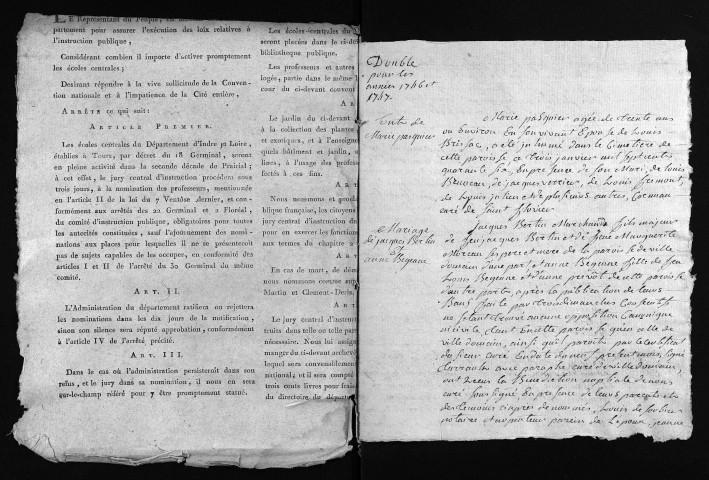 LE Représentant du Peuple,
partement pour assurer l'exécution des loix relatives à
l'instruction publique ;
Considérant combien il importe d'activer promptement
les écoles centrales ;
Desirant répondre à la vive sollicitude de la Conven-
tion nationale et à l'impatience de la Cité entière,
ARRÊTE ce qui suit :
ARTICLE PREMIER.
Les écoles centrales du Département d'Indre et Loire,
établies à Tours, par décret du 18 Germinal, seront
en pleine activité dans la seconde décade de Prairial ;
à cet effet, le jury central d'instruction procédera sous
trois jours, à la nomination des professeurs, mentionnée
en l'article II de la loi du 7 Ventôse dernier, et con-
formément aux arrêtés des 22 Germinal et 2 Floréal,
du comité d'instruction publique, obligatoires pour toutes
les autorités constituées, sauf l'ajournement des nomi-
nations aux places pour lesquelles il ne se présenteroit
pas de sujets capables de les occuper, en conformité des
articles I et II de l'arrêté du 30 Germinal du même
comité.
ART. II.
L'Administration du département ratifiera ou rejettera
les nominations dans les dix jours de la notification,
sinon son silence sera réputé approbation, conformément
à l'article IV de l'arrêté précité.
ART. III.
Dans le cas où l'administration persisteroit dans son
refus, et le jury dans sa nomination, il nous en sera
sur-le-champ référé pour y être promptement statué.
Les écoles-centrales du
seront placées dans le ci-de
bibliotheque publique.
Les professeurs et autres
logés, partie dans le même
cour du ci-devant couvent
AR
Le jardin du ci-devant
à la collection des plantes
et exotiques, et à l'enseigne
quels bâtiment et jardin,
lieres, à l'usage des profes
fectés à ces fins.
ART
Nous nommons et procla
blique française, les citoyens
jury central d'instruction de
pour en exercer les fonction
aux termes du chapitre
ART
En cas de mort, de dém
nous nommons comme sup
Martin et Clement-Deris,
ART
Le jury central d'instruc
truits dans telle ou telle part
nécessaire. Nous lui assig
manger du ci-devant archevê
lequel sera convenablement
national ; et il sera compté
trois cents livres pour frais
du directoire du départem
Double
pour les
années 1746 et
1747.
Marie pasquier
Marie pasquier agée de trente ans
ou Environ En son vivant Epouse de Louis
Brisac, a esté inhumé dans le Cimetiere de
cette paroisse ce trois janvier mil sept cents
quarante six, En presence de son Mari, de Louis
de jacques verrier, de Louis
de Louis julien et de plusieurs autres,
curé de Saint flovier
Mariage
de jacques Bertin
&
anne Begenne
jacques Bertin Marchand fils majeur
de feu jacques Bertin et de feue Marguerite
Moreau ses pere et mere de la paroisse de ville
domain d'une part, et anne Begenne fille de feu
Louis Begenne et d'anne prevost de cette paroisse
d'autre part, après la publication de leurs
Bans faitte par trois dimanches Consecutifs
ne s'etant trouvé aucune opposition Canonique
ni civile tant En cette paroisse qu'en celle de
ville domain, ainsi qu'il paroit par le certificat
du sieur curé En datte du sept present mois, signé
avec paraphe curé de ville domain,
ont receu la Benediction nuptiale de nous
curé Soussigné En presence de leurs parents et
des temoins cy apres denommés, Louis de
notaire